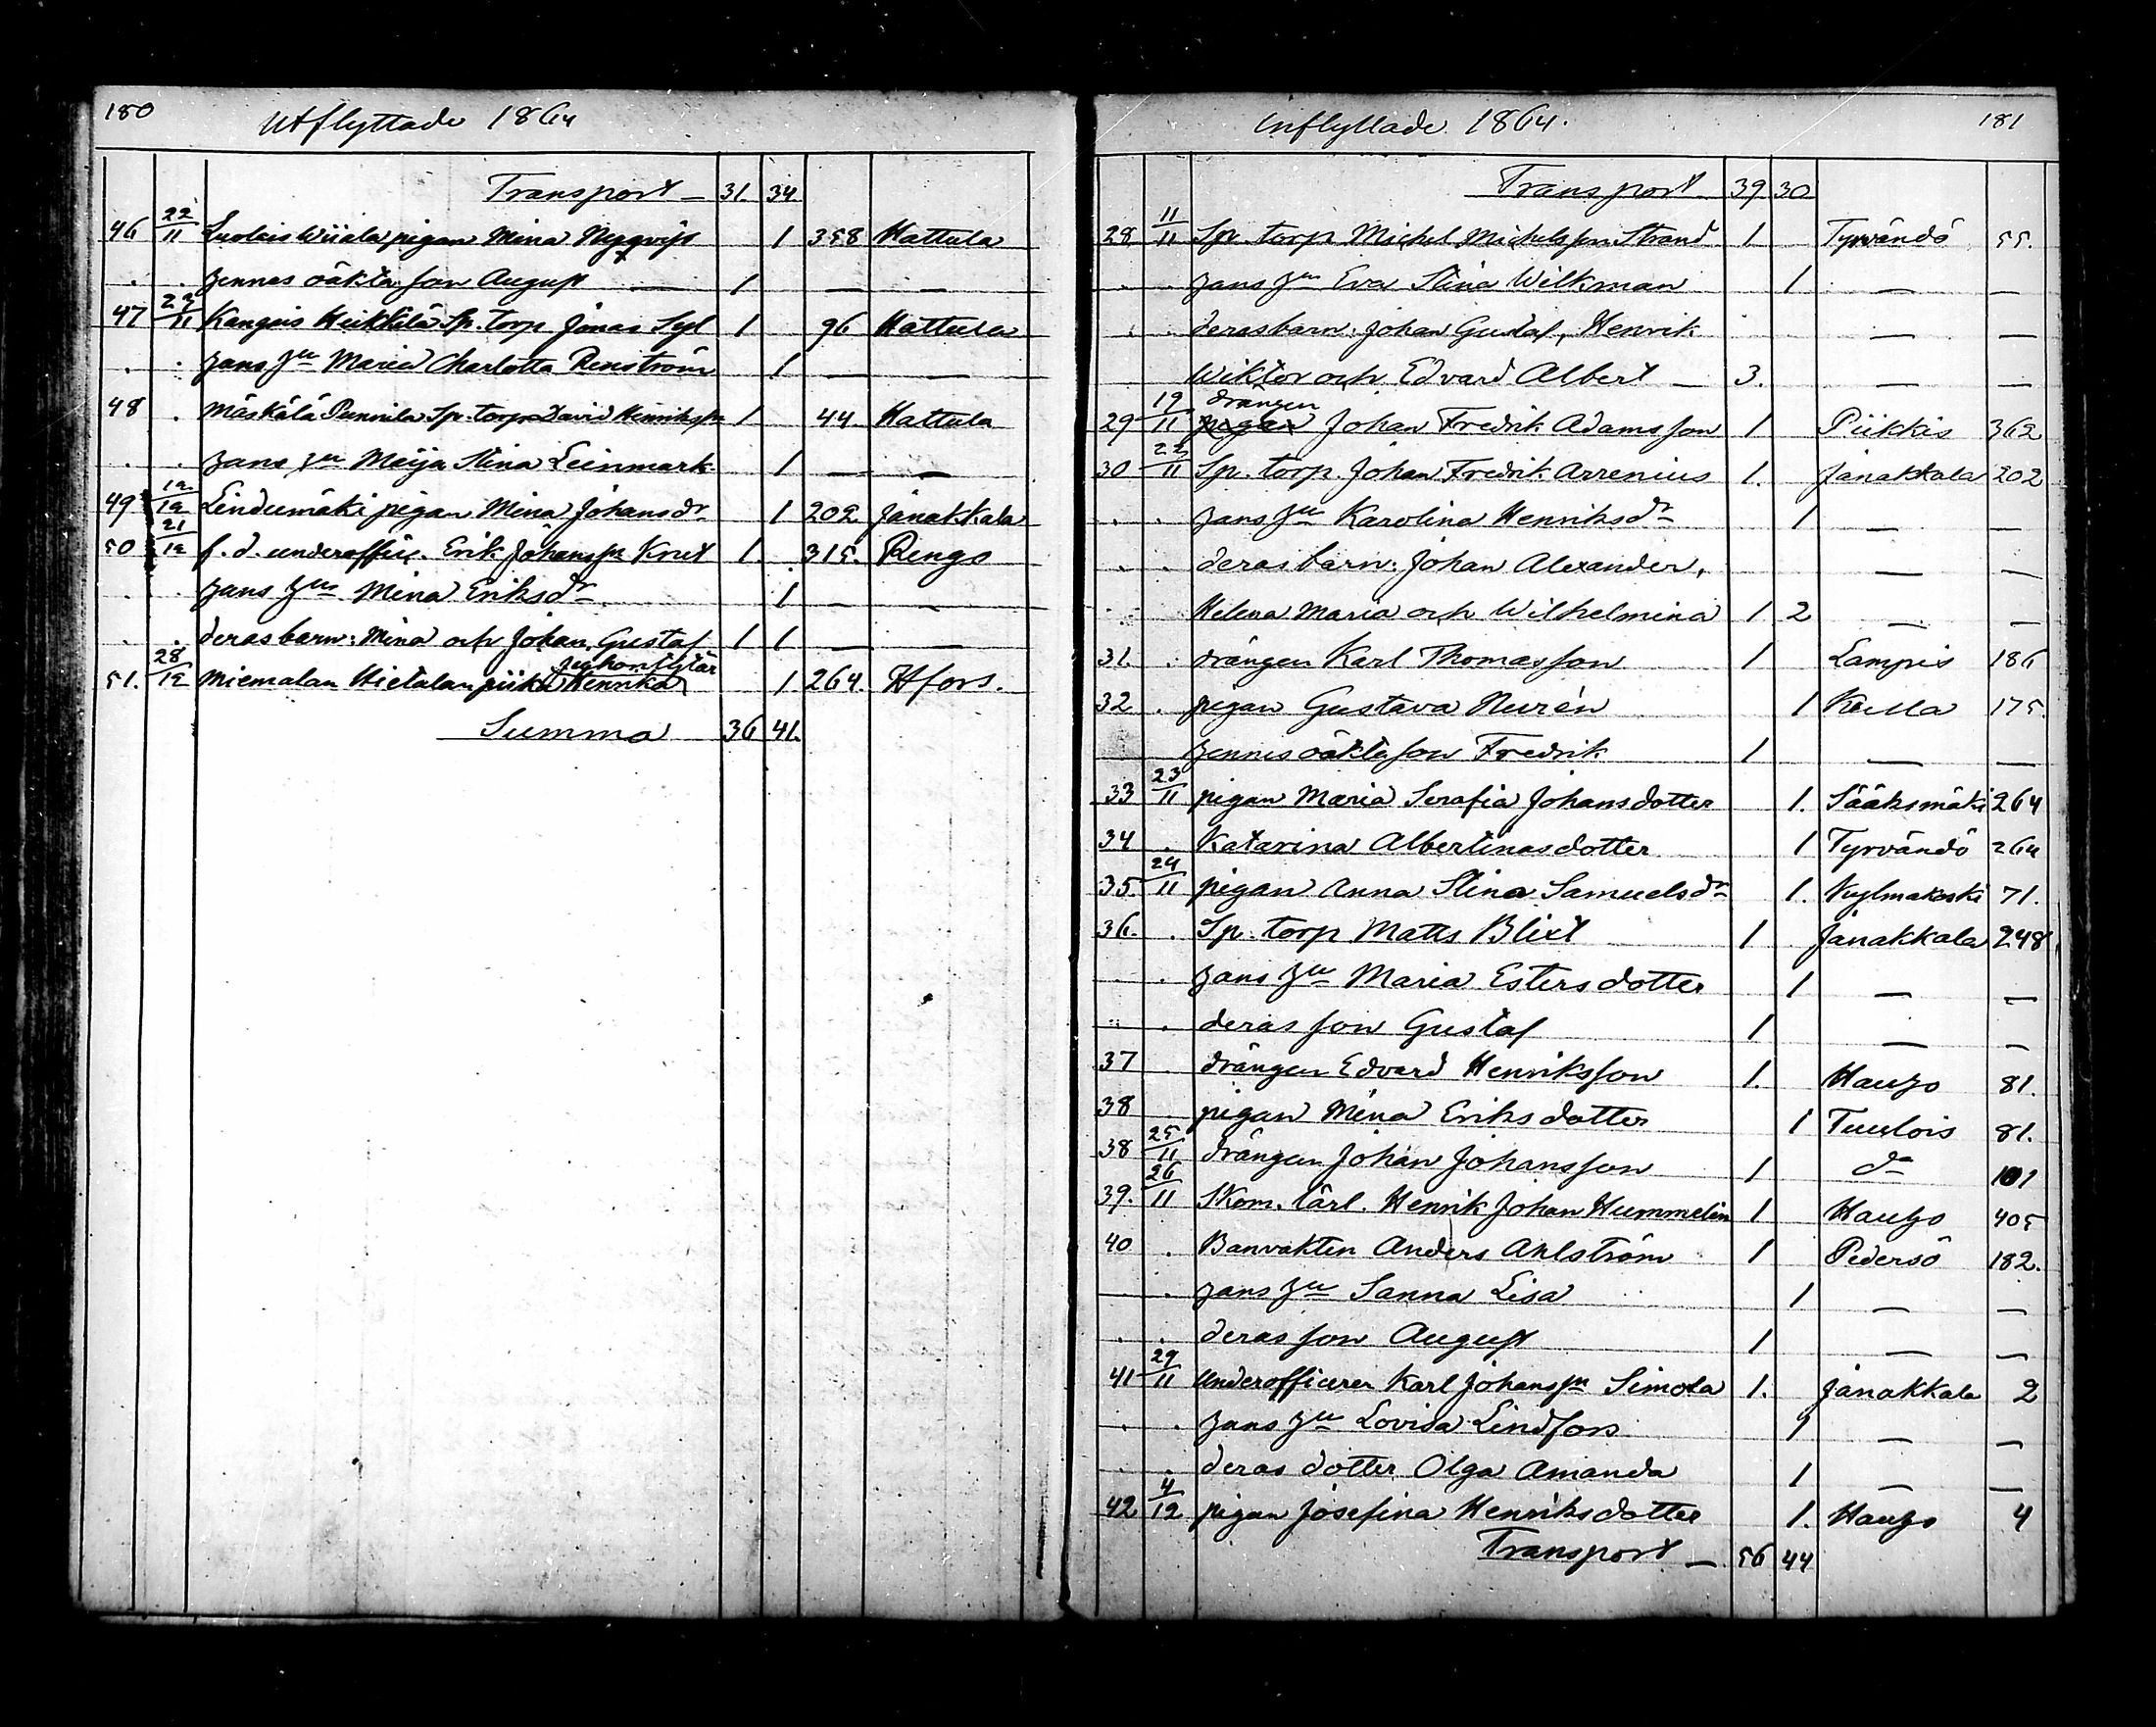 180
Utflyttade 1864
Transport — 31. 34.
46 22/11 Luolais Wiiala pigan Mina Nyqvist 1 358 Hattula
. . hennes oäkta son August 1 — —
47 23/11 Kangais Heikkilä Sp. torp Jonas Syl 1 96 Hattula
. . hans hu Maria Charlotta Renström 1 — —
48 . Mäskälä Punnila Sp. torp David Henrikssn 1 44. Hattula
. . hans hu Maija Stina Leinmark 1 — —
49 12/12 Lindumäki pigan Mina Johansdr 1 202 Janakkala
50 21/12 f. d. underoffic. Erik Johanssn Krut 1. 315. Rengo
. . hans hu Mina Eriksdr 1 — —
. . deras barn: Mina och Johan Gustaf 1 1 — —
51. 28/12 Miemalan Hietalan piika Henrika 1 264. Hfors.
Summa 36 41.
Inflyttade 1864.
181
Transport 39 30
28 11/11 Sp. torp Michel Michelsson Strand 1 Tyrvändö 55.
. . hans hu Eva Stina Wilkman 1 — —
. . deras barn: Johan Gustaf, Henrik — —
Wiktor och Edvard Albert — 3. — —
drängen
29 19/11 pigan Johan Fredrik Adamsson 1 Piikkis 362
30 22/11 Sp. torp. Johan Fredrik Arrenius 1. Janakkala 202
. . hans hu Karolina Henriksdr 1 — —
. . deras barn: Johan Alexander, — —
. . Helena Maria och Wilhelmina 1 2 — —
31. . drängen Karl Thomasson 1 Lampis 186
32 . pigan Gustava Nurén 1 175.
hennes oäkta son Fredrik 1 — —
33 23/11 pigan Maria Serafia Johansdotter 1. Sääksmäki 264
34 . Katarina Albertinasdotter 1 Tyrvändö 264
35. 24/11 pigan Anna Stina Samuelsdr 1. Kylmäkoski 71.
36. . Sp. torp Matts Blixt 1 Janakkala 248
. . hans hu Maria Estersdotter 1 — —
. . deras son Gustaf 1 — —
37 drängen Edvard Henriksson 1. Hauho 81.
38 pigan Mina Eriksdotter 1 Tuulois 81.
38 25/11 drängen Johan Johansson 1 do 101
39. 26/11 Skom. lärl. Henrik Johan Hummelin 1 Hauho 405
40 . Banvakten Anders Ahlström 1 Pedersö 182.
. hans hu Sanna Lisa 1 — —
. . deras son August 1 — —
41 29/11 Underofficeren Karl Johanssn Simola 1. Janakkala 2
. . hans hu Lovisa Lindfors 1 — —
. . deras dotter Olga Amanda 1 — —
42 4/12 pigan Josefina Henriksdotter 1. Hauho 4
Transport — 56 44